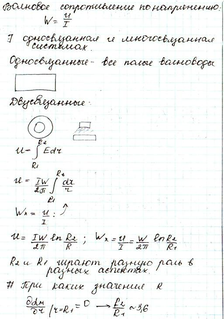 Волновое сопротивление по напряжению
W = U/I
односвязанная и многосвязанная
системах.
Односвязанные - все полые волноводы
Двусвязанные:
U = ∫ Edr
R2
R1
U = IW/2π ∫ dr/r
R2
R1
Wх = U/I :
U = IW/2π ln R2/R1 ; Wх = U/I = W/2π ln R2/R1
R2 и R1 играют разную роль в
разных аспектах
При каких значения R
/r=R1 = 0 → R2/R1 ~ 3,6